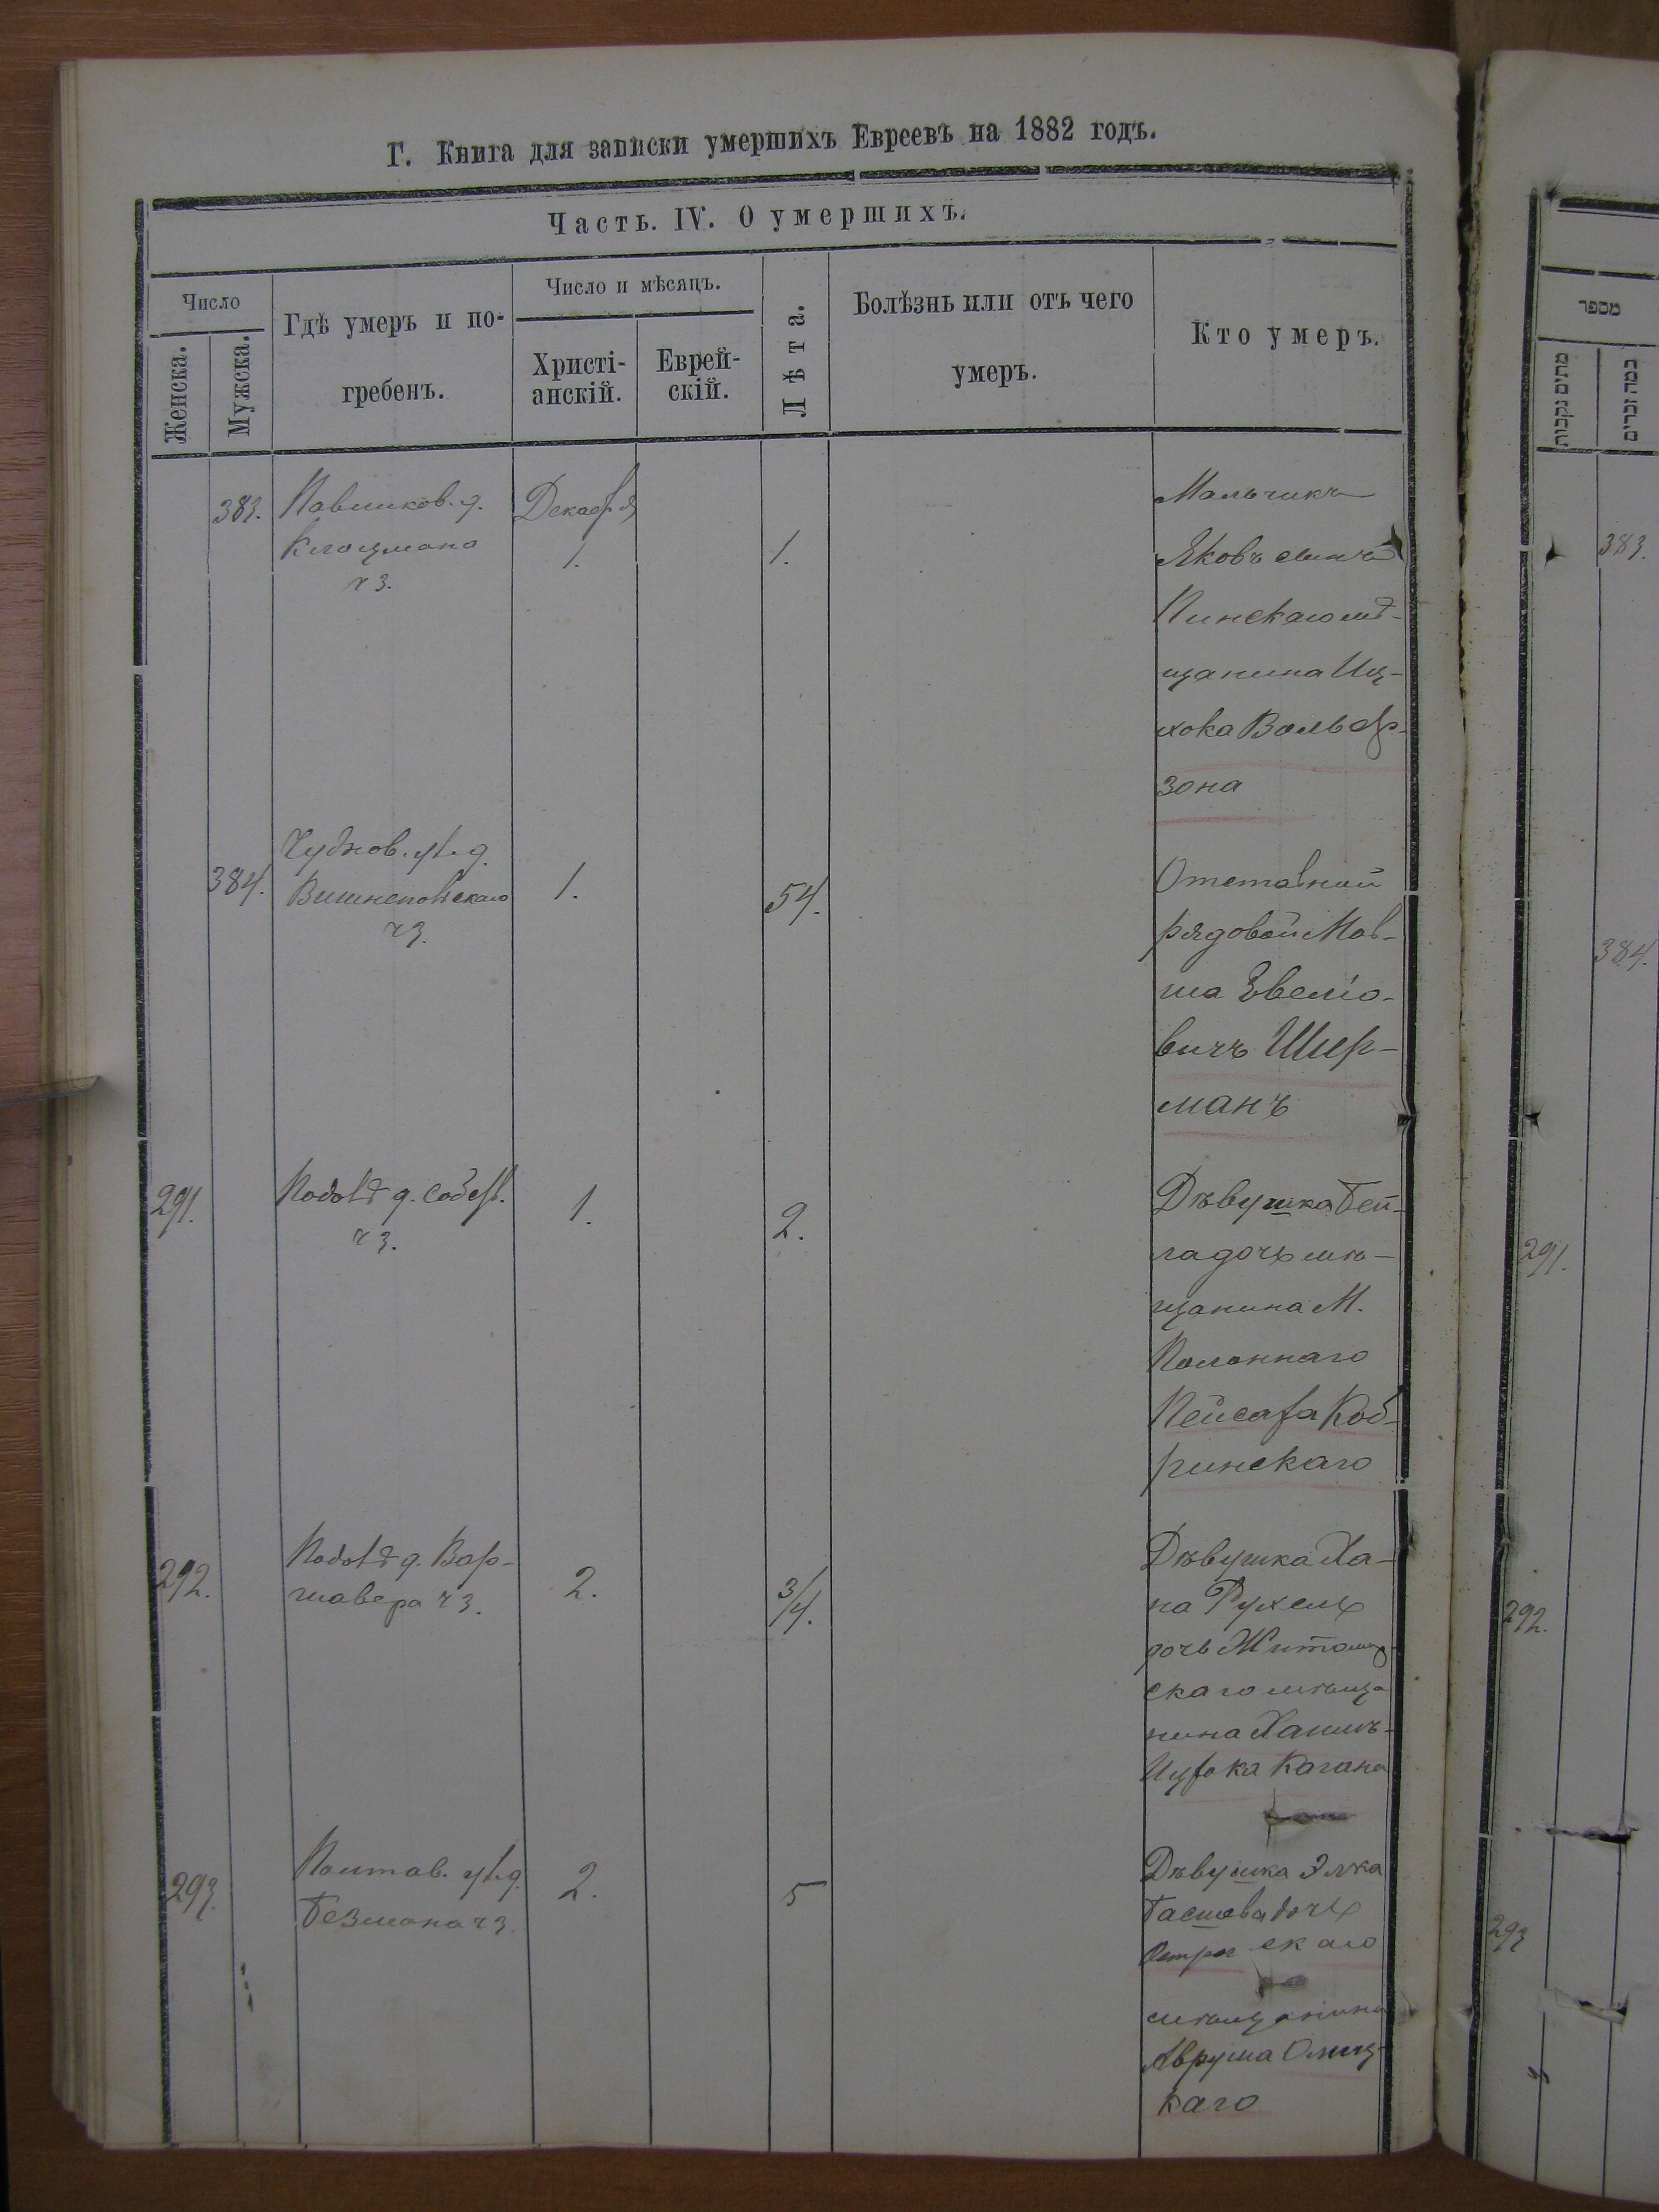 Г. Книга для записки умершихъ Евреевъ на 1882 годъ.
Часть. IV. О умершихъ.
Число
Женска.
Мужска.
Гдѣ умеръ и по-
гребенъ.
Число и мѣсяцъ.
Христі-
анскій.
Еврей-
скій.
Лѣта.
Болѣзнь или отъ чего
умеръ.
Кто умеръ.
383.
1.
1.
Мальчикъ
Яковъ сынъ
Пинскаго мѣ-
щанина Иц-
хока Вольф-
зона
384.
Чуднов. ул. д.
Вишнеповскаго
1.
54.
Отставной
рядовой Мов-
ша Эвеліо-
вичъ Шер-
манъ
291.
д. собст.
1.
2.
Дѣвушка Бей-
ла дочь мѣ-
щанина М.
Полоннаго
Пейсаха Коб-
ринскаго
292.
д. Вар-
шавера
2.
3/4.
Дѣвушка Ха-
на Рухель
дочь Житомир-
скаго мѣща
нина Хаимъ-
Ицхока Кагана
293.
2.
5
Дѣвушка Элка
Басшева дочь
Острогскаго
мѣщанина
Авруша Олиц-
каго
מספר
מתים נקבות
כמה זכרים
383.
384.
291.
292.
293